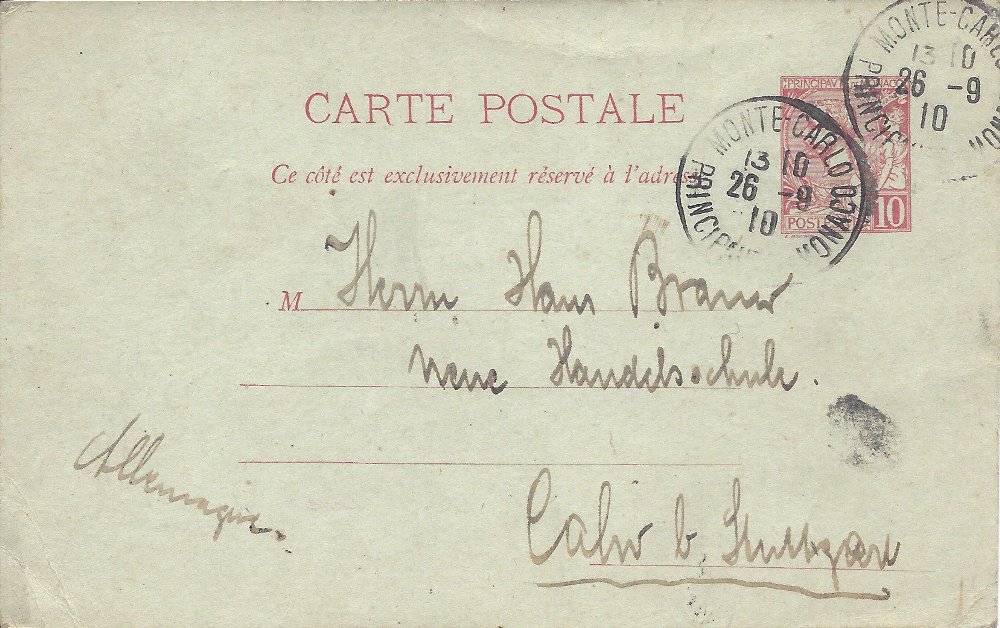 CARTE POSTALE
Ce côté est exclusivement réservé à l'adresse
PRINCIPAUTÉ DE MONACO
POSTE
10
MONTE-CARLO
13 10
26 -9
10
PRINCIPAUTÉ MONACO
MONTE-CARLO
13 10
26 -9
10
M Herrn Hans
Neue Handelsschule.
Calw b. Stuttgart
Allemagne.